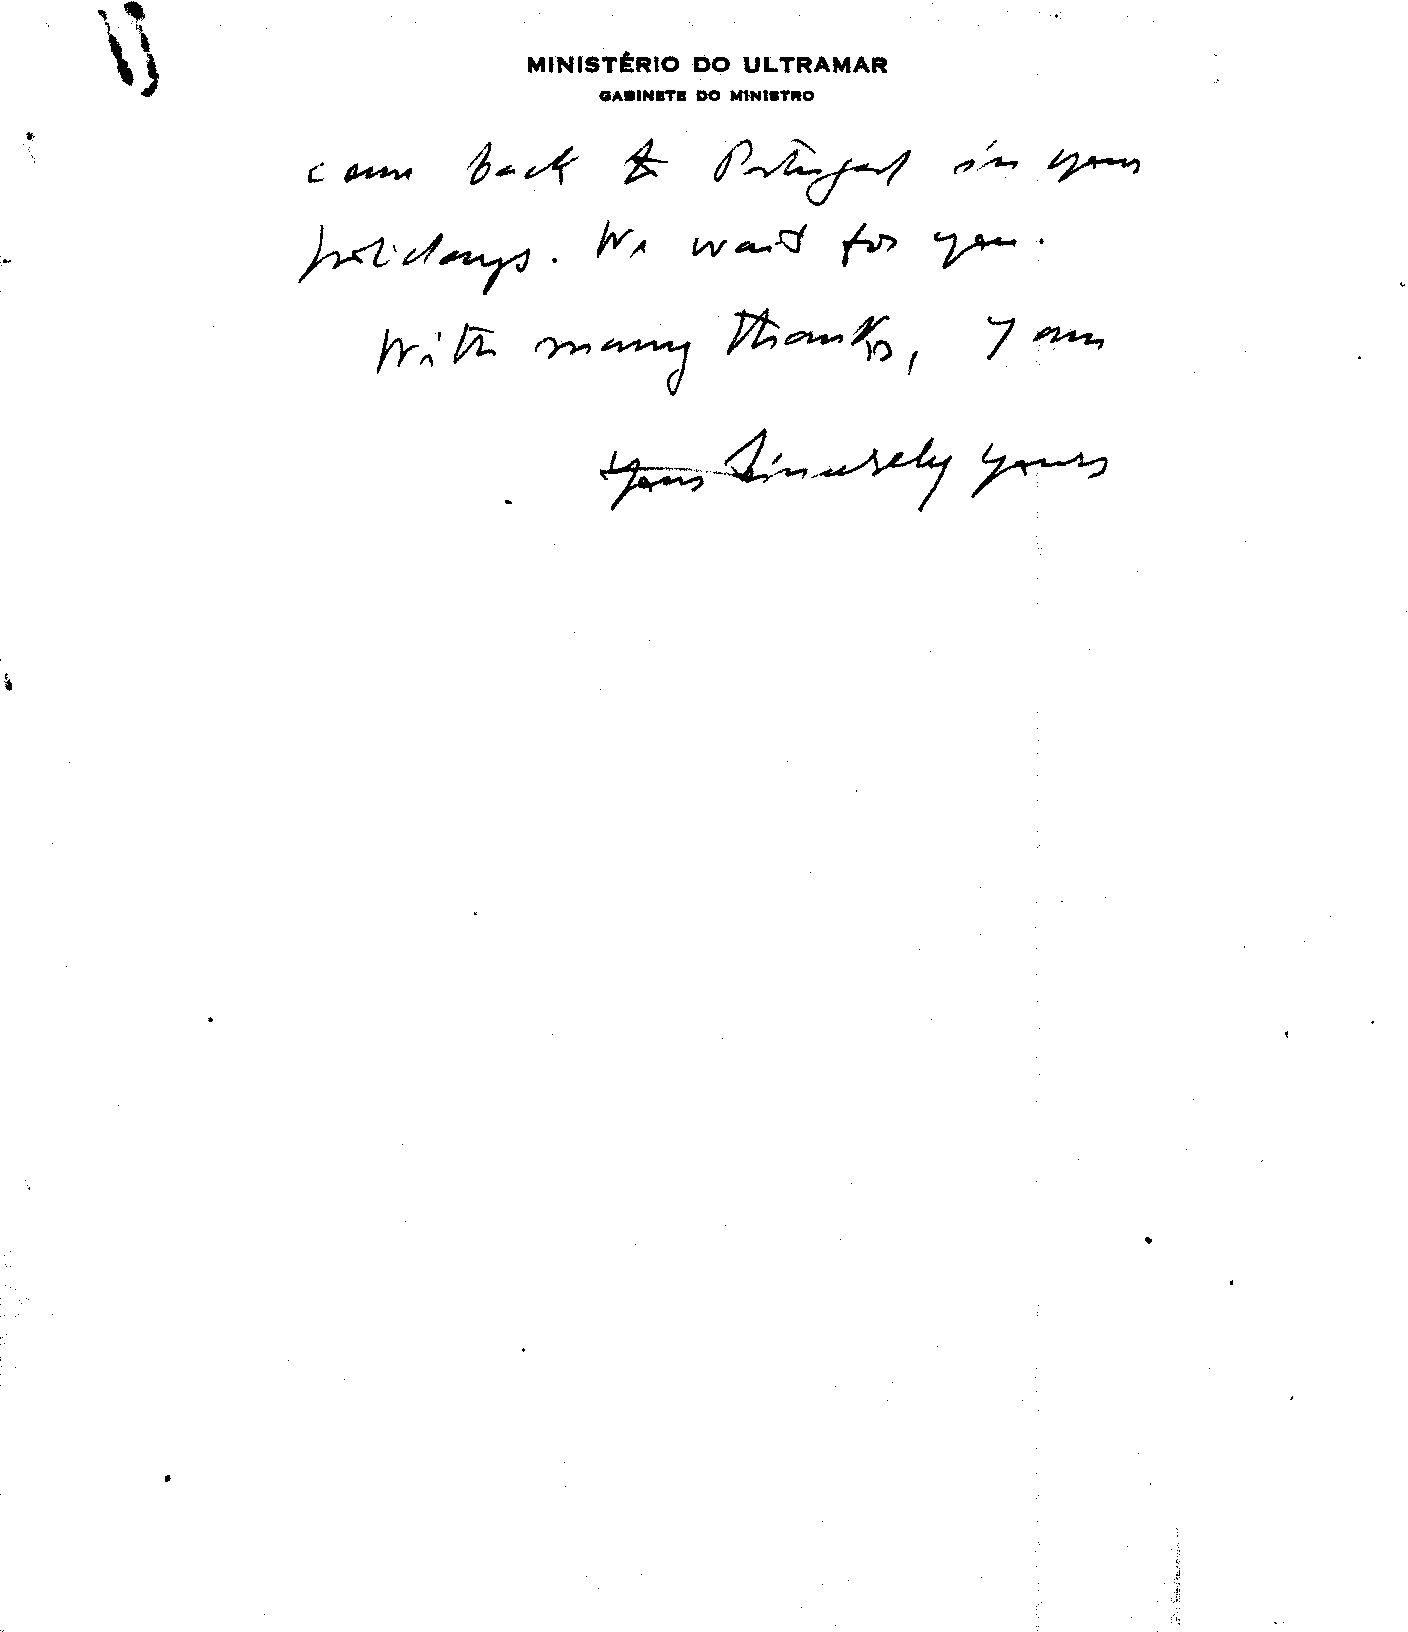 MINISTÉRIO DO ULTRAMAR
GABINETE DO MINISTRO
come back to Portugal in your
holidays. We wait for you.
With many thanks, I am
Yours Sincerely yours